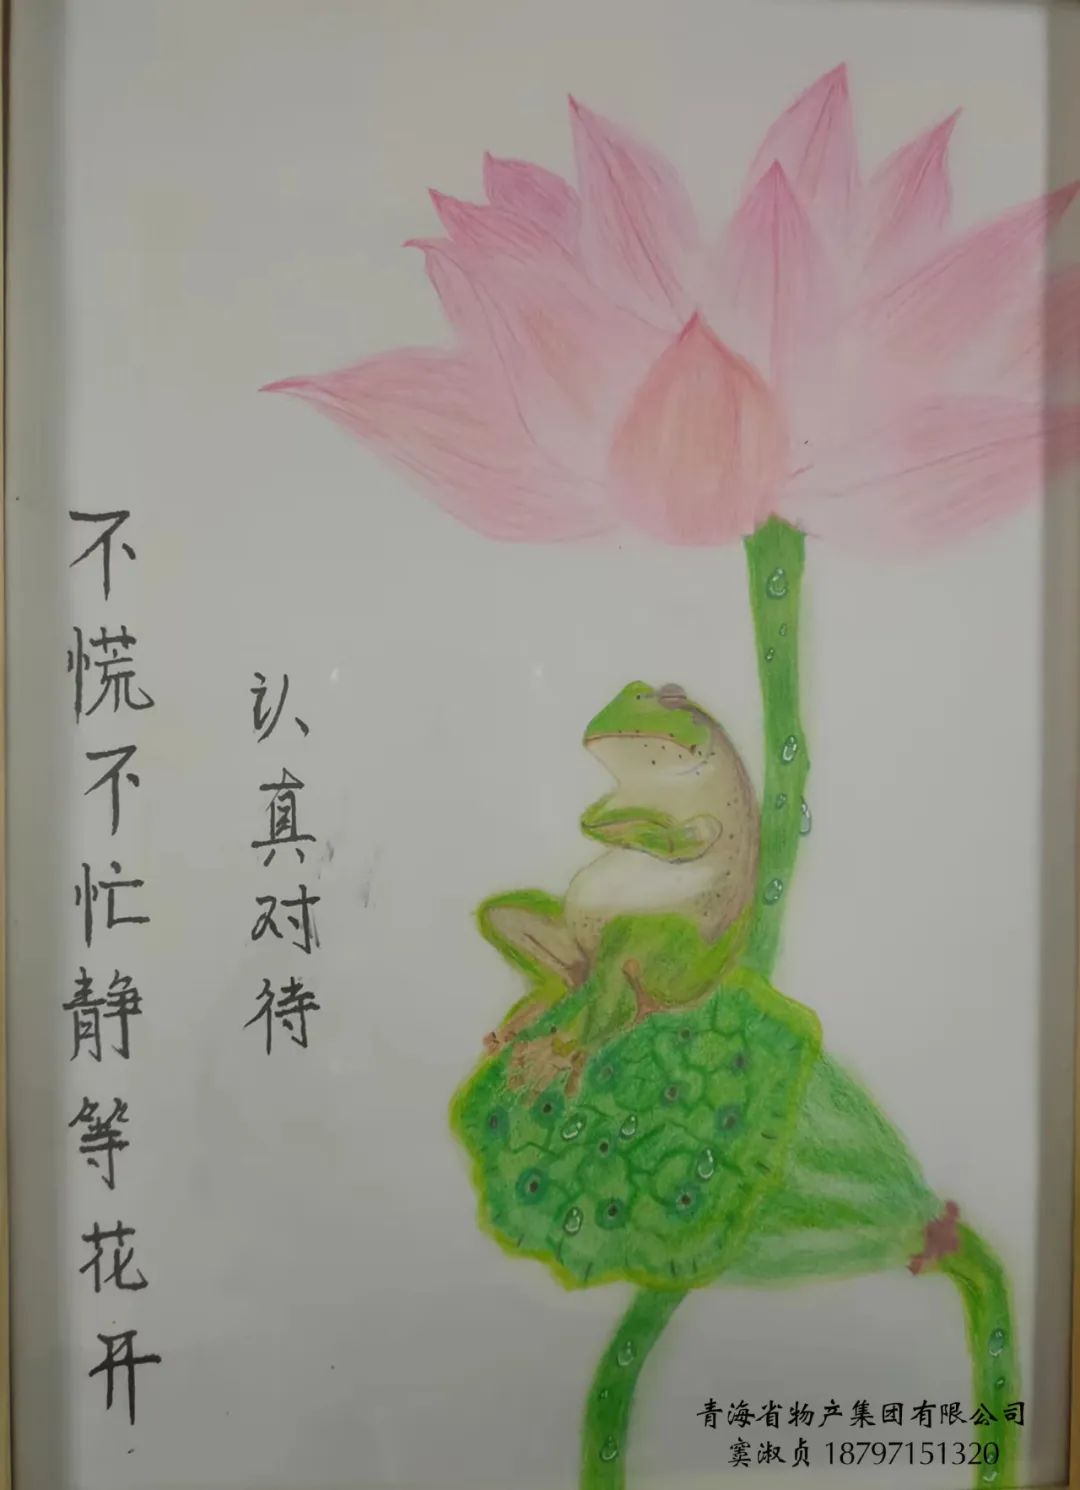 认真对待
不慌不忙静等花开
青海省物产集团有限公司
窦淑贞 18797151320